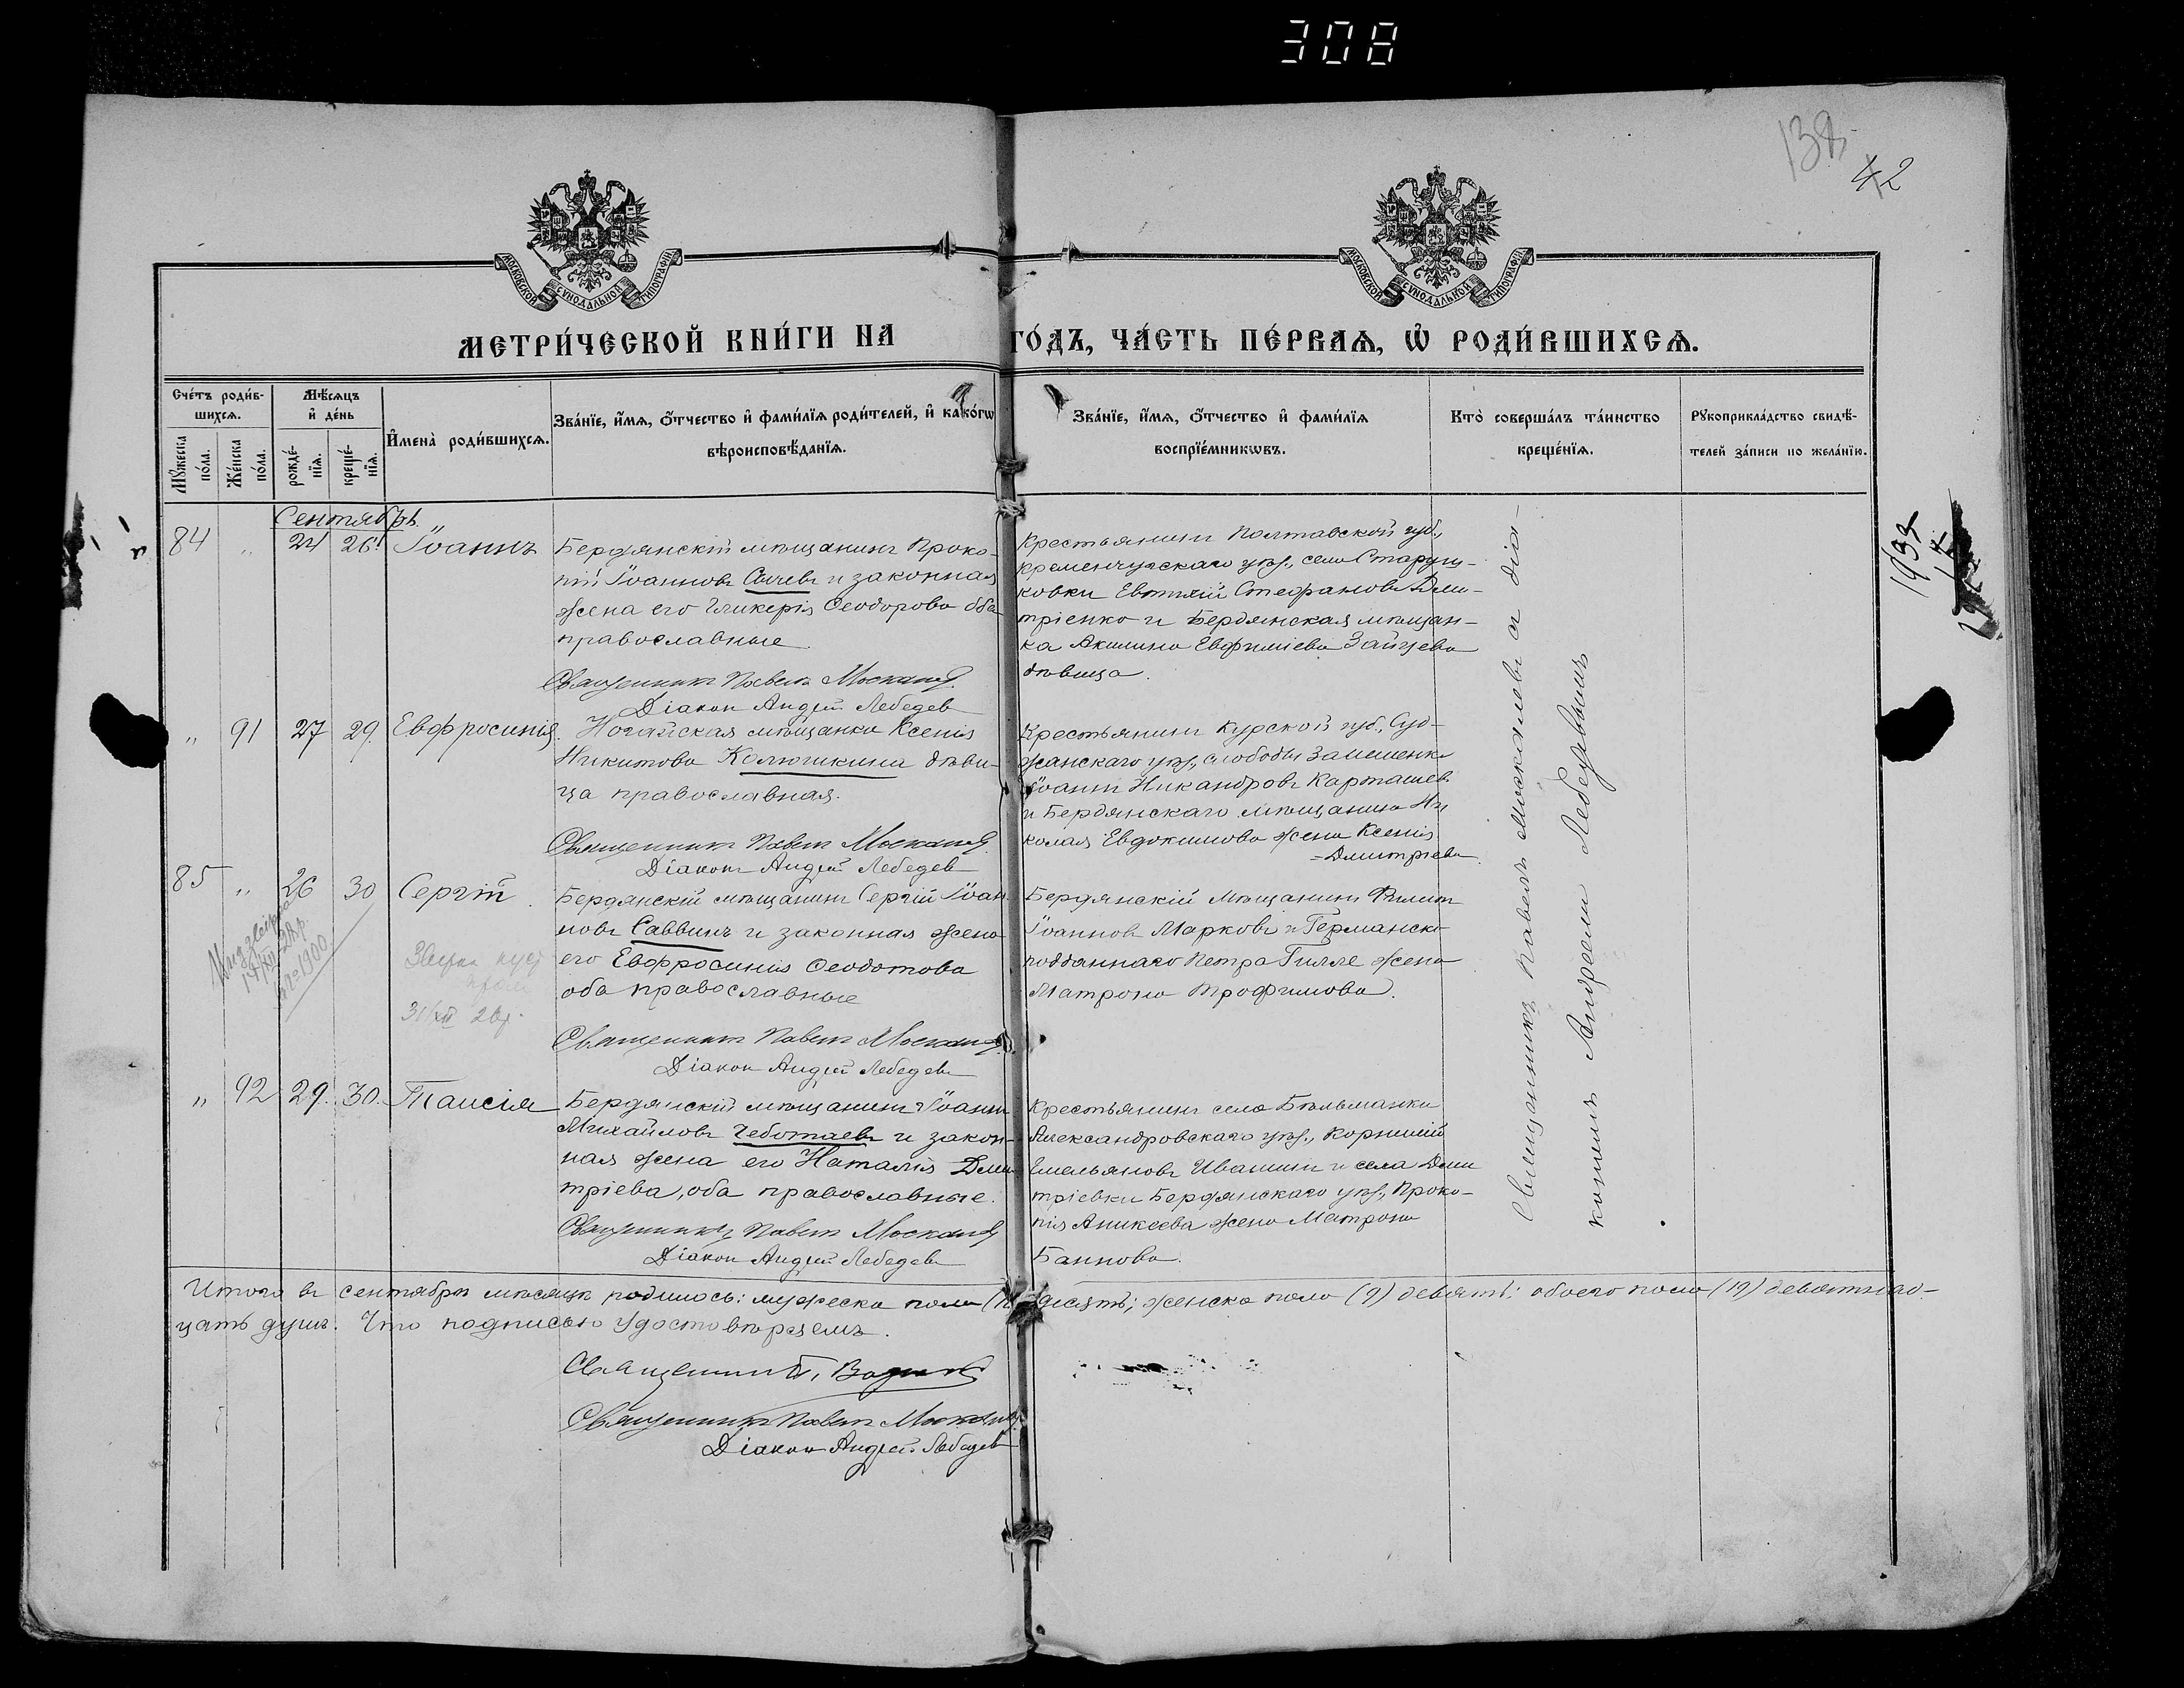 308
138
42
МОСКОВСКОЙ СѴНОДАЛЬНОЙ ТИПОГРАФІИ
МОСКОВСКОЙ СѴНОДАЛЬНОЙ ТИПОГРАФІИ
МЕТРИ́ЧЕСКОЙ КНИ́ГИ НА ГО́ДЪ, ЧА́СТЬ ПЕ́РВАѦ, Ѡ҆ РОДИ́ВШИХСѦ.
Сче́тъ роди́в-
шихсѧ.
Мꙋ́жеска по́ла.
Же́нска по́ла.
Мѣ́сѧцъ
и҆ де́нь
рожде́-
нїѧ.
креще́-
нїѧ.
И҆мена̀ роди́вшихсѧ.
Зва́нїе, и҆́мѧ, ѻ҆́тчество и҆ фами́лїѧ роди́телей, и҆ како́гѡ
вѣроисповѣ́данїѧ.
Зва́нїе, и҆́мѧ, ѻ҆́тчество и҆ фами́лїѧ
воспрїе́мникѡвъ.
Кто̀ соверша́лъ та́инство
креще́нїѧ.
Рꙋкоприкла́дство свидѣ́-
телей за́писи по жела́нїю.
Сентябрь.
84 " 24 26. Іоаннъ
Бердянскій мѣщанинъ Проко-
пій Іоанновъ и законная
жена его Гликерія Ѳеодорова оба
православные
Священникъ Павелъ Москалевъ
Діаконъ Андрей Лебедевъ
Крестьянинъ Полтавской губ.,
Кременчугскаго уѣз., села
Евтихій Стефановъ Дми-
тріенко и Бердянская мѣщан-
ка Акилина Евфиміева Зайцева
дѣвица.
" 91 27 29. Евфросинія.
Ногайская мѣщанка Ксенія
Никитова Колюшкина дѣви-
ца православная.
Священникъ Павелъ Москалевъ
Діаконъ Андрей Лебедевъ
Крестьянинъ Курской губ., Суд-
жанскаго уѣз., слободы
Іоаннъ Никандровъ Карташевъ
и Бердянскаго мѣщанина Ни
колая Евдокимова жена Ксенія
=Дмитріева.
85 " 26 30 Сергій.
Бердянскій мѣщанинъ Сергій Іоан
новъ Саввинъ и законная жена
его Евфросинія Ѳеодотова
оба православные
31/XII 26г.
1900
Священникъ Павелъ Москалевъ.
Діаконъ Андрей Лебедевъ
Бердянскій мѣщанинъ Филиппъ
Іоанновъ Марковъ и Германско
подданнаго Петра Гилле жена
Матрона Трофимова.
" 92 29. 30. Таисія
Бердянскій мѣщанинъ Іоаннъ
Михайловъ Чеботаевъ и закон-
ная жена его Наталія Дми-
тріева, оба православные.
Священникъ Павелъ Москалевъ
Діаконъ Андрей Лебедевъ
Крестьянинъ села Бѣльманки
Александровскаго уѣз., Корнилій
Емельяновъ Ивашинъ и села Дми
тріевки Бердянскаго уѣз., Проко-
пія Аникеева жена Матрона
Баннова.
Священникъ Павелъ Москалевъ и діа-
конъ Андрей Лебедевъ
Итого въ сентябрѣ мѣсяцѣ родилось: мужеска пола (10) десять; женска пола (9) девять; обоего пола (19) девятнад-
цать душъ. Что подписью удостовѣряемъ.
Священникъ
Священникъ Павелъ Москалевъ
Діаконъ Андрей Лебедевъ